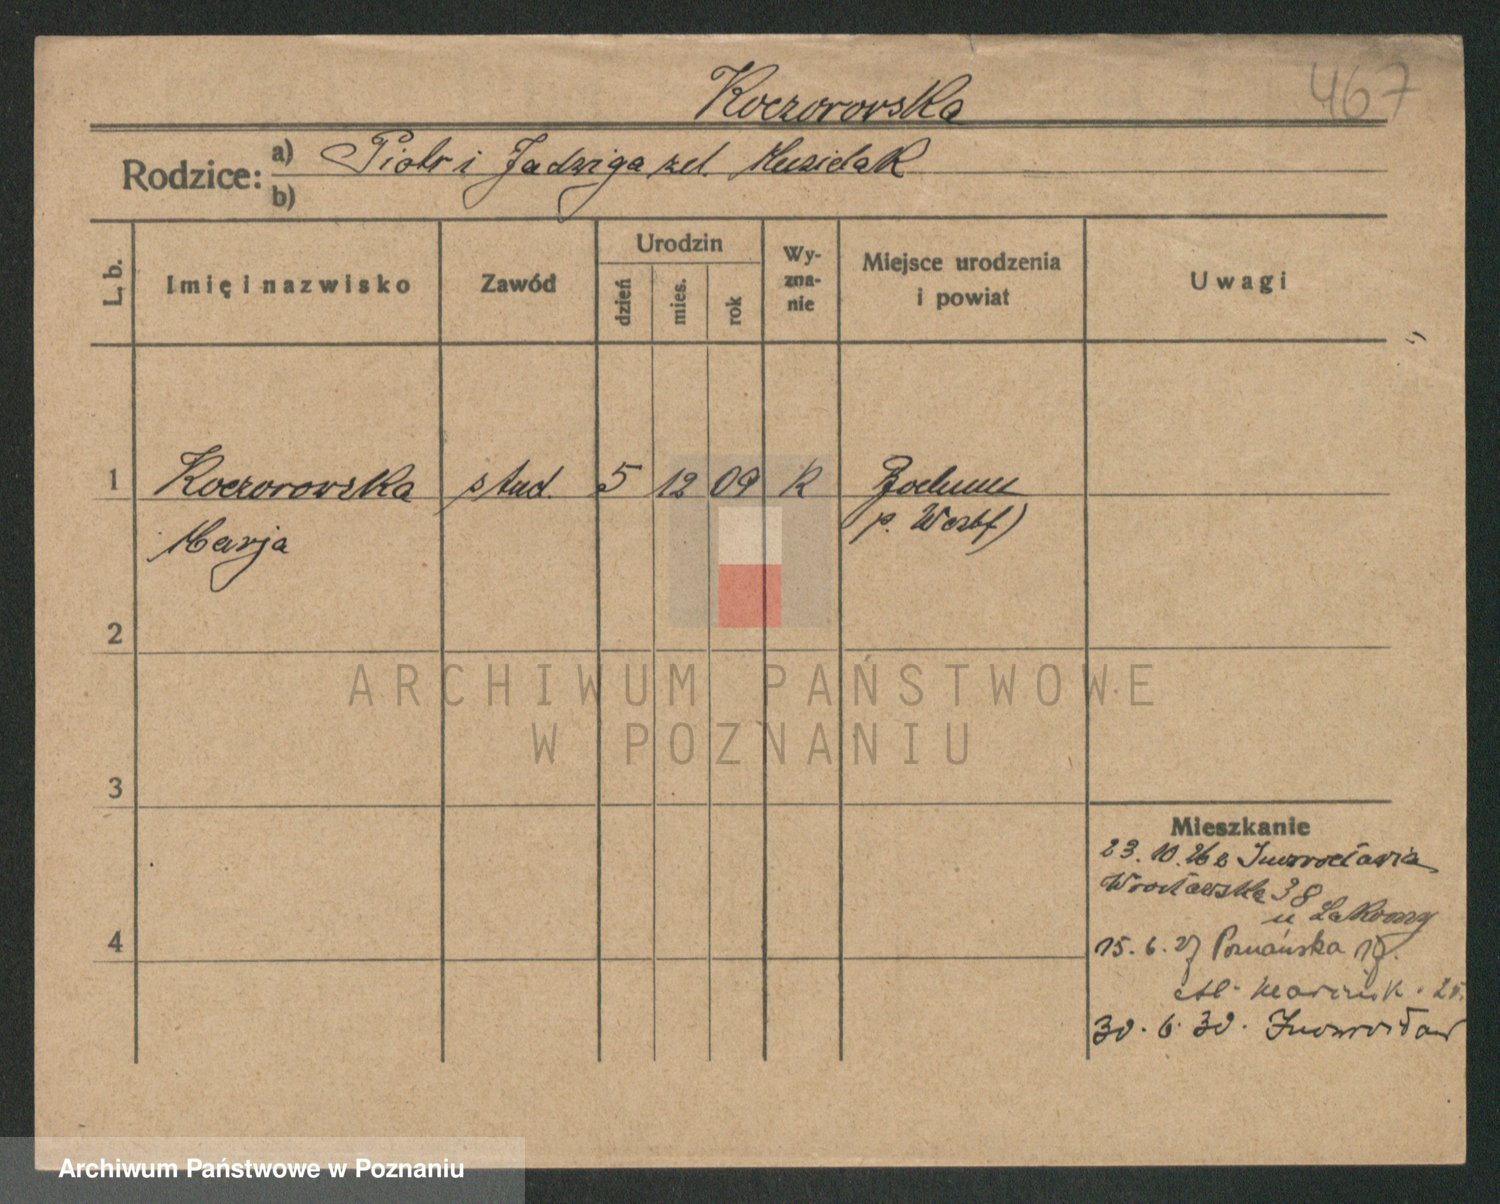 467
Koczorowska
Rodzice: a) Piotr i Jadwiga zd. Musielak
b)
L. b.
Imię i nazwisko
Zawód
Urodzin
dzień
mies.
rok
Wy-
zna-
nie
Miejsce urodzenia
i powiat
Uwagi
1 Koczorowska stud. 5 12 09 K Bochum
Marja p. Westf)
2
3
4
Mieszkanie
23. 10. 26 z Inowrocławia
Wrocławska 38
u
15. 6. Poznańska
Marcink. 25.
30. 6. 30. Inowrocław
ARCHIWUM PAŃSTWOWE
W POZNANIU
Archiwum Państwowe w Poznaniu